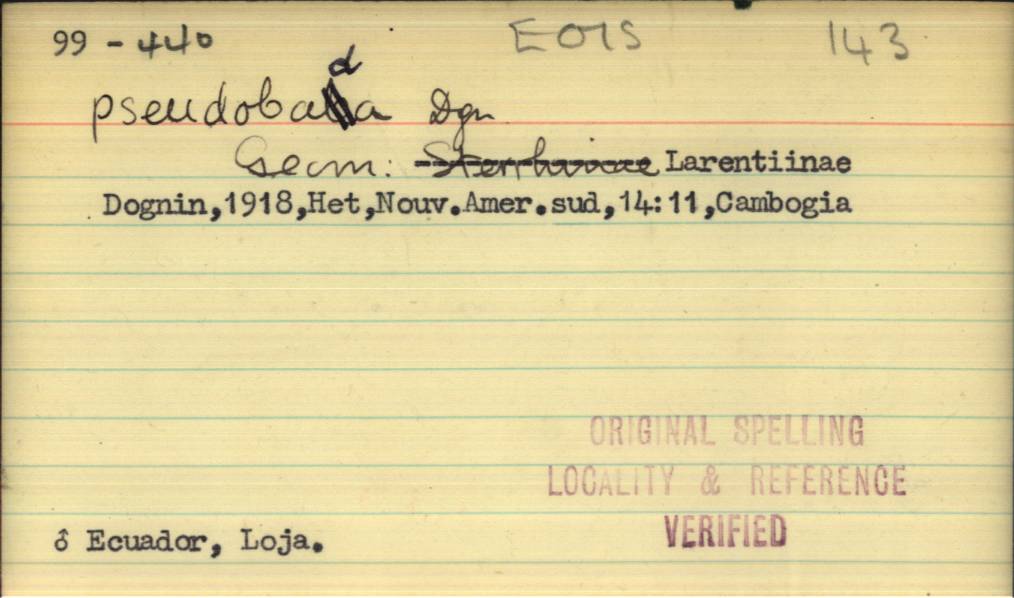 99 - 440 EOIS 143
pseudobada Dgn
Geom: Sterrhinae Larentiinae
Dognin,1918,Het,Nouv.Amer.sud,14:11,Cambogia
ORIGINAL SPELLING
LOCALITY & REFERENCE
VERIFIED
♂ Ecuador, Loja.